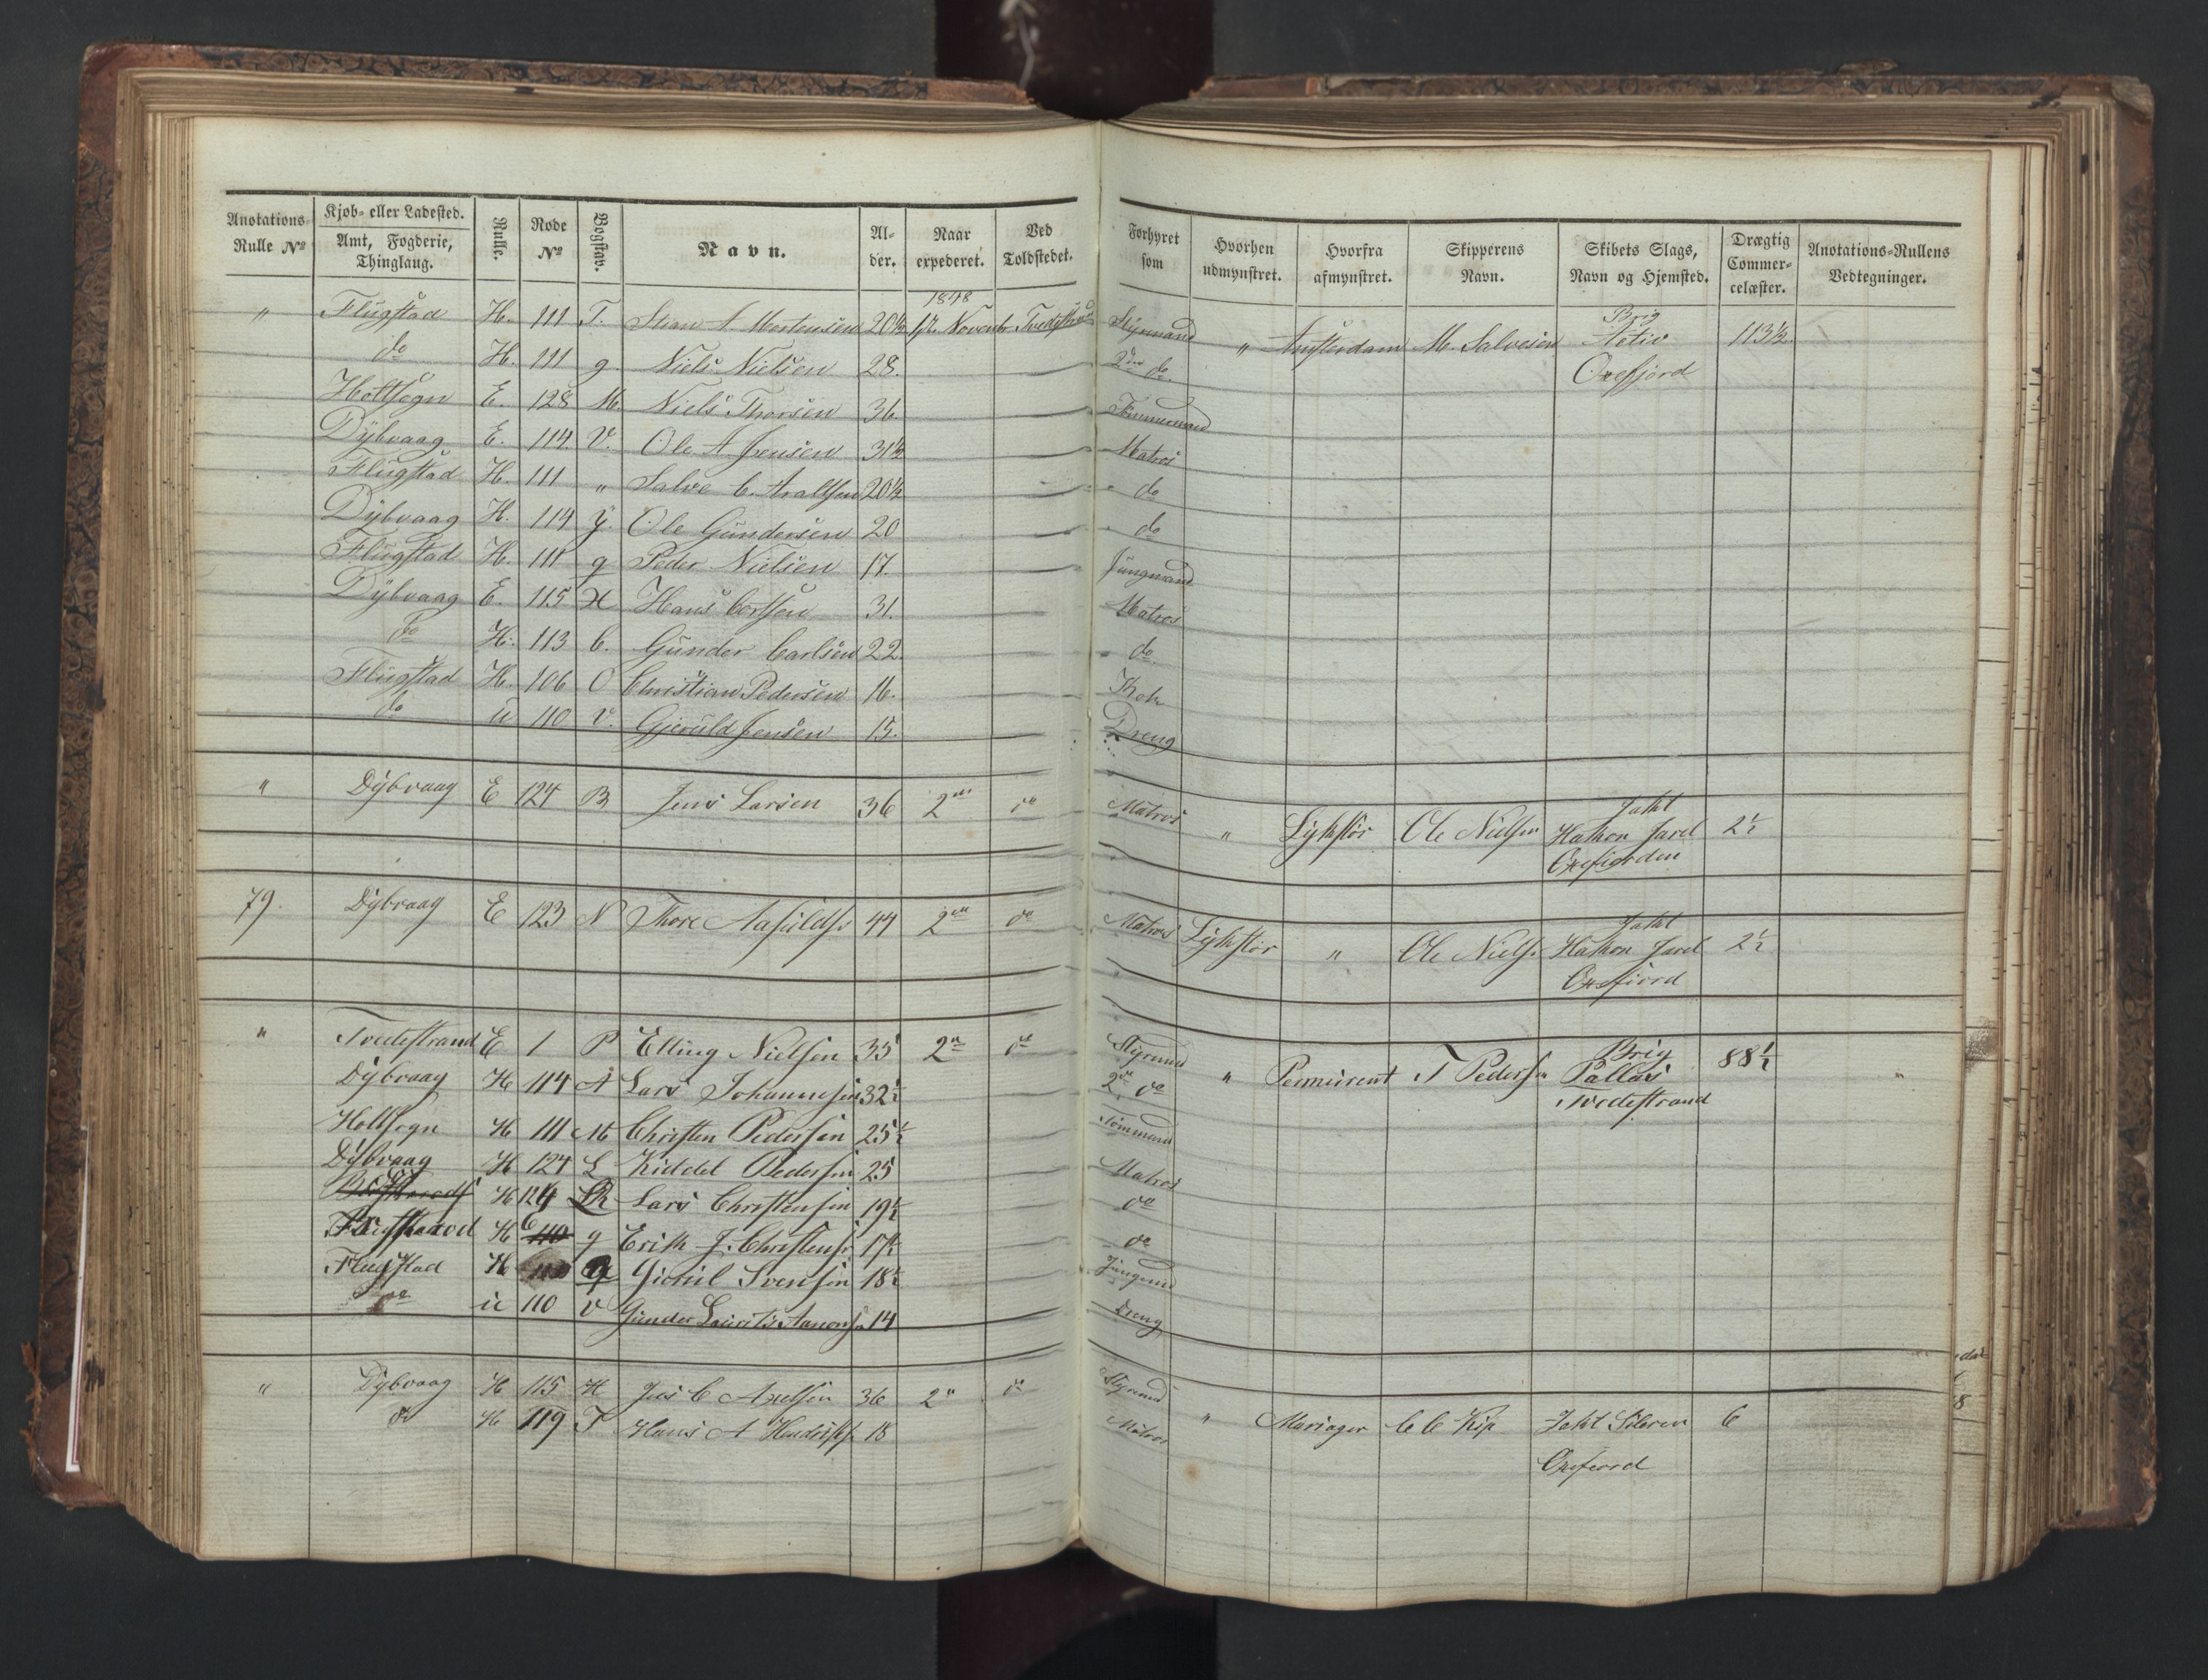 Anotations Rulle No | Kjøb- eller Ladested. Amt, Fogderie, Thinglaug. | Rulle. | Rode No | Bogstav. | Navn. | Alder. | Naar expederet. | Ved Toldstedet. | Forhyret som | Hvorhen udmynstret. | Hvorfra afmynstret. | Skipperens Navn. | Skibets Slags, Navn og Hjemsted. | Drægtig Commercelæster. | Anotations-Rullens Vedtegninger.
1848 Brig
" Flugstad H. 111 T. A. Mortensen 20½ Novembr Tvedestrand Styrmand " Amsterdam M. Salvesen Activ 113½
do H. 111 g. Niels Nielsen 28. 2den do. Oxefjord
Holtsogn E. 128 M. Niels Thorsen 36. Tømmermand
Dÿbvaag E. 114. V. Ole A. Jensen 31½ Matros
Flugstad H. 111 " Salve C. 20½ do
Dÿbvaag H. 114 Y. Ole Gundersen 20 do
Flugstad H. 111 g Peder Nielsen 17. Jungmand
Dÿbvaag E. 115 H Hans 31. Matros
do H. 113 C. Gunder Carlsen 22. do
Flugstad H. 106 O Christian Pedersen 16. Kok
do u 110 v. Gjeruld Jensen 15. Dreng
" Dÿbvaag E 124 B Jens Larsen 36 2 do Matros " Lÿhstør Ole Nielsen Jakt
Hakon Jarl 2½
Oxefiorden
79. Dÿbvaag E 123 N Thore 44 2 do Matros Lÿhstør " Ole Niels. Jakt
Hakon Jarl 2½
Oxefiord
" Tvedestrand E 1 P Elling Nielsen 35 2 do Styrmd " T Peders Brig 88½
Dÿbvaag H 114 A Lars Johannesen 32½ 2 do Pallas "
Tvedestrand
Holtsogn H 111 M Christen Pedersen 25½ Tømmermd
Dÿbvaag H 124 L Kiddel Pedersen 25 Matros
H 124 Lars Christensen 19½ do
H 6 g Erik J. Christens. 17½ do
Flugstad H Svensen 18½ Jungmd
do u 110 v Gunder Lauritz Aanons 14 Dreng
" Dÿbvaag H 115 H Jens C Axelsen 36 2 do Styrmd
do H 119 T Hans A 18 Matros " Mariager C C Kip Jakt 6
Oxefiord